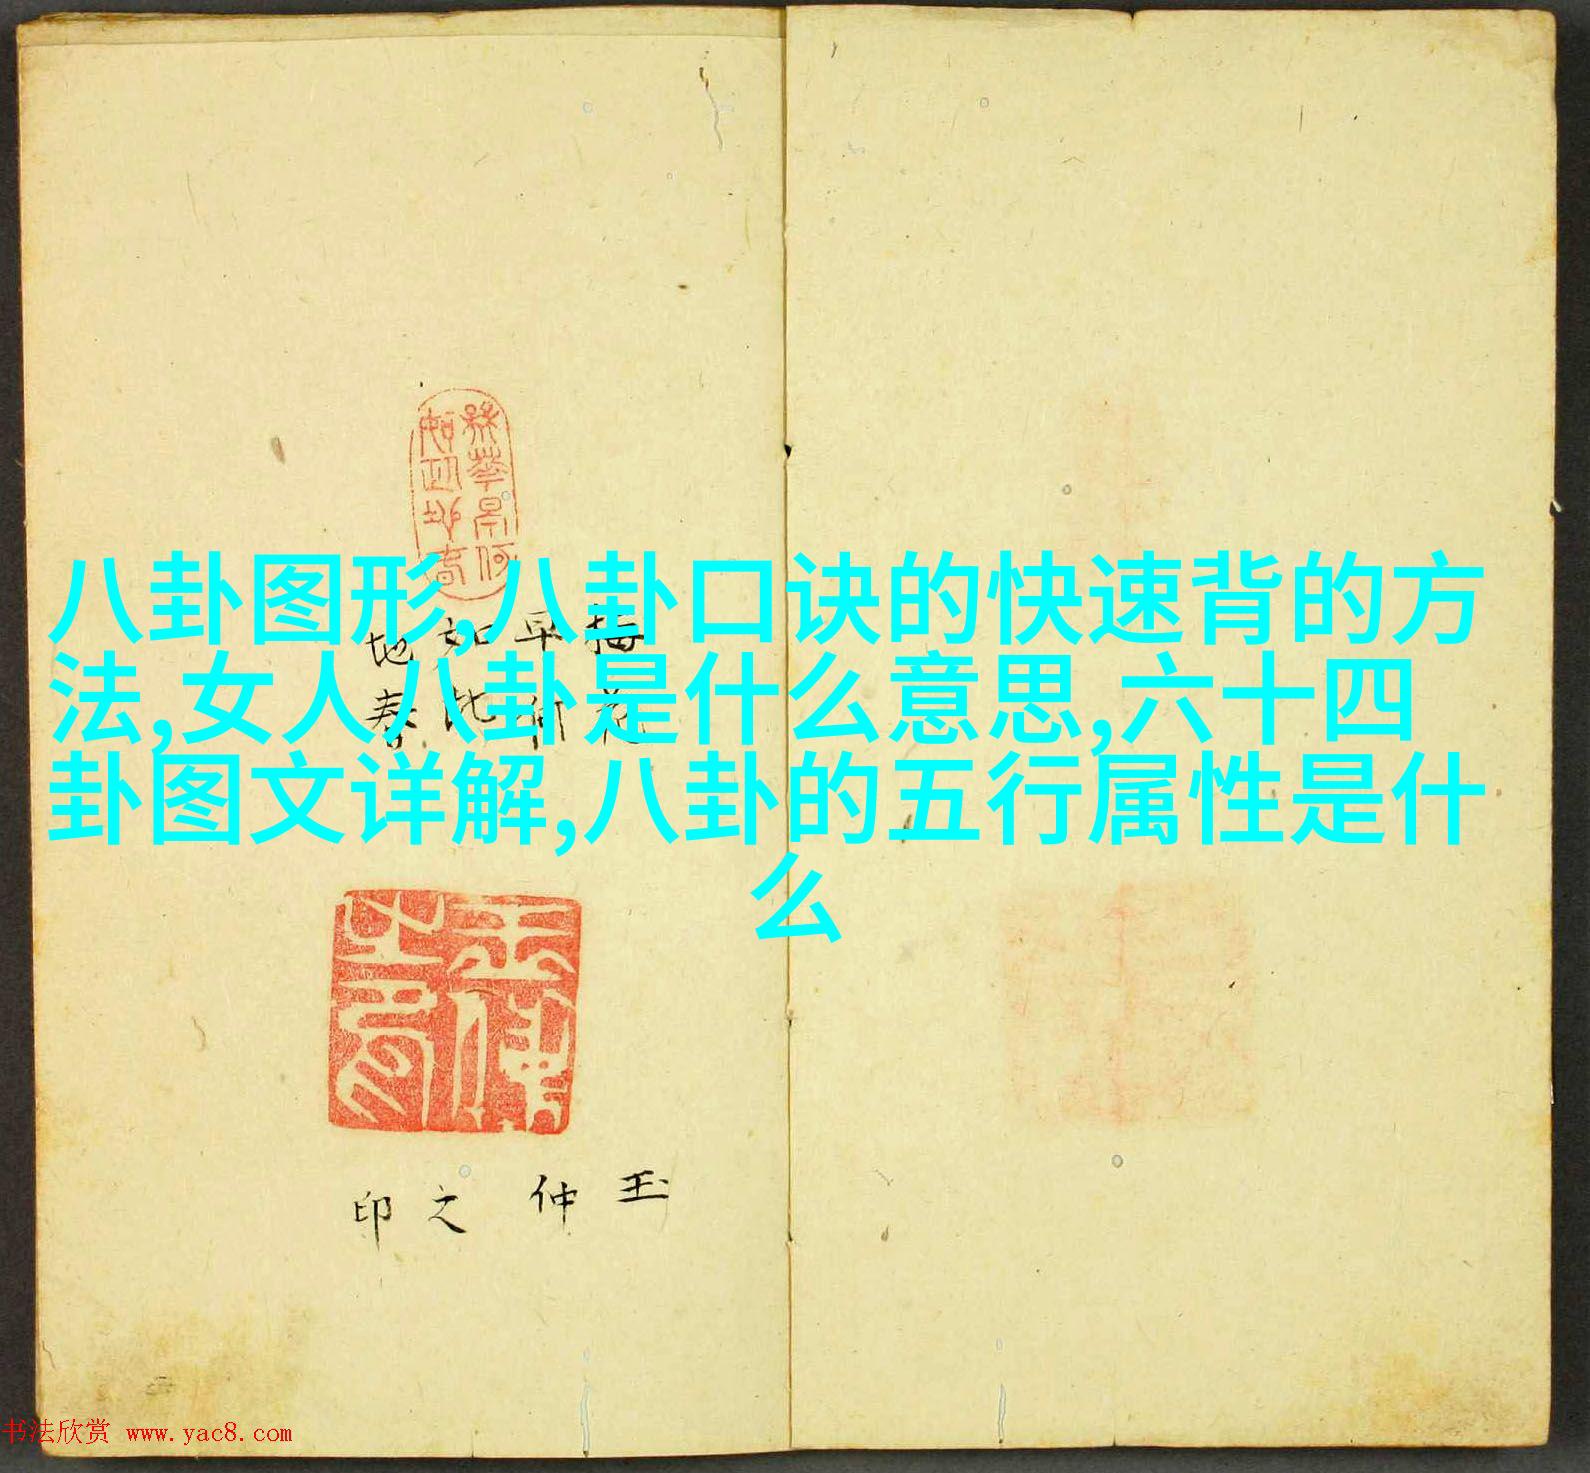 八卦图形,八卦口诀的快速背的方
法,女人八卦是什么意思,六十四
卦图文详解,八卦的五行属性是什
么
梅花
早何
如此
地春
玉仲之印
书法欣赏 www.yac8.com